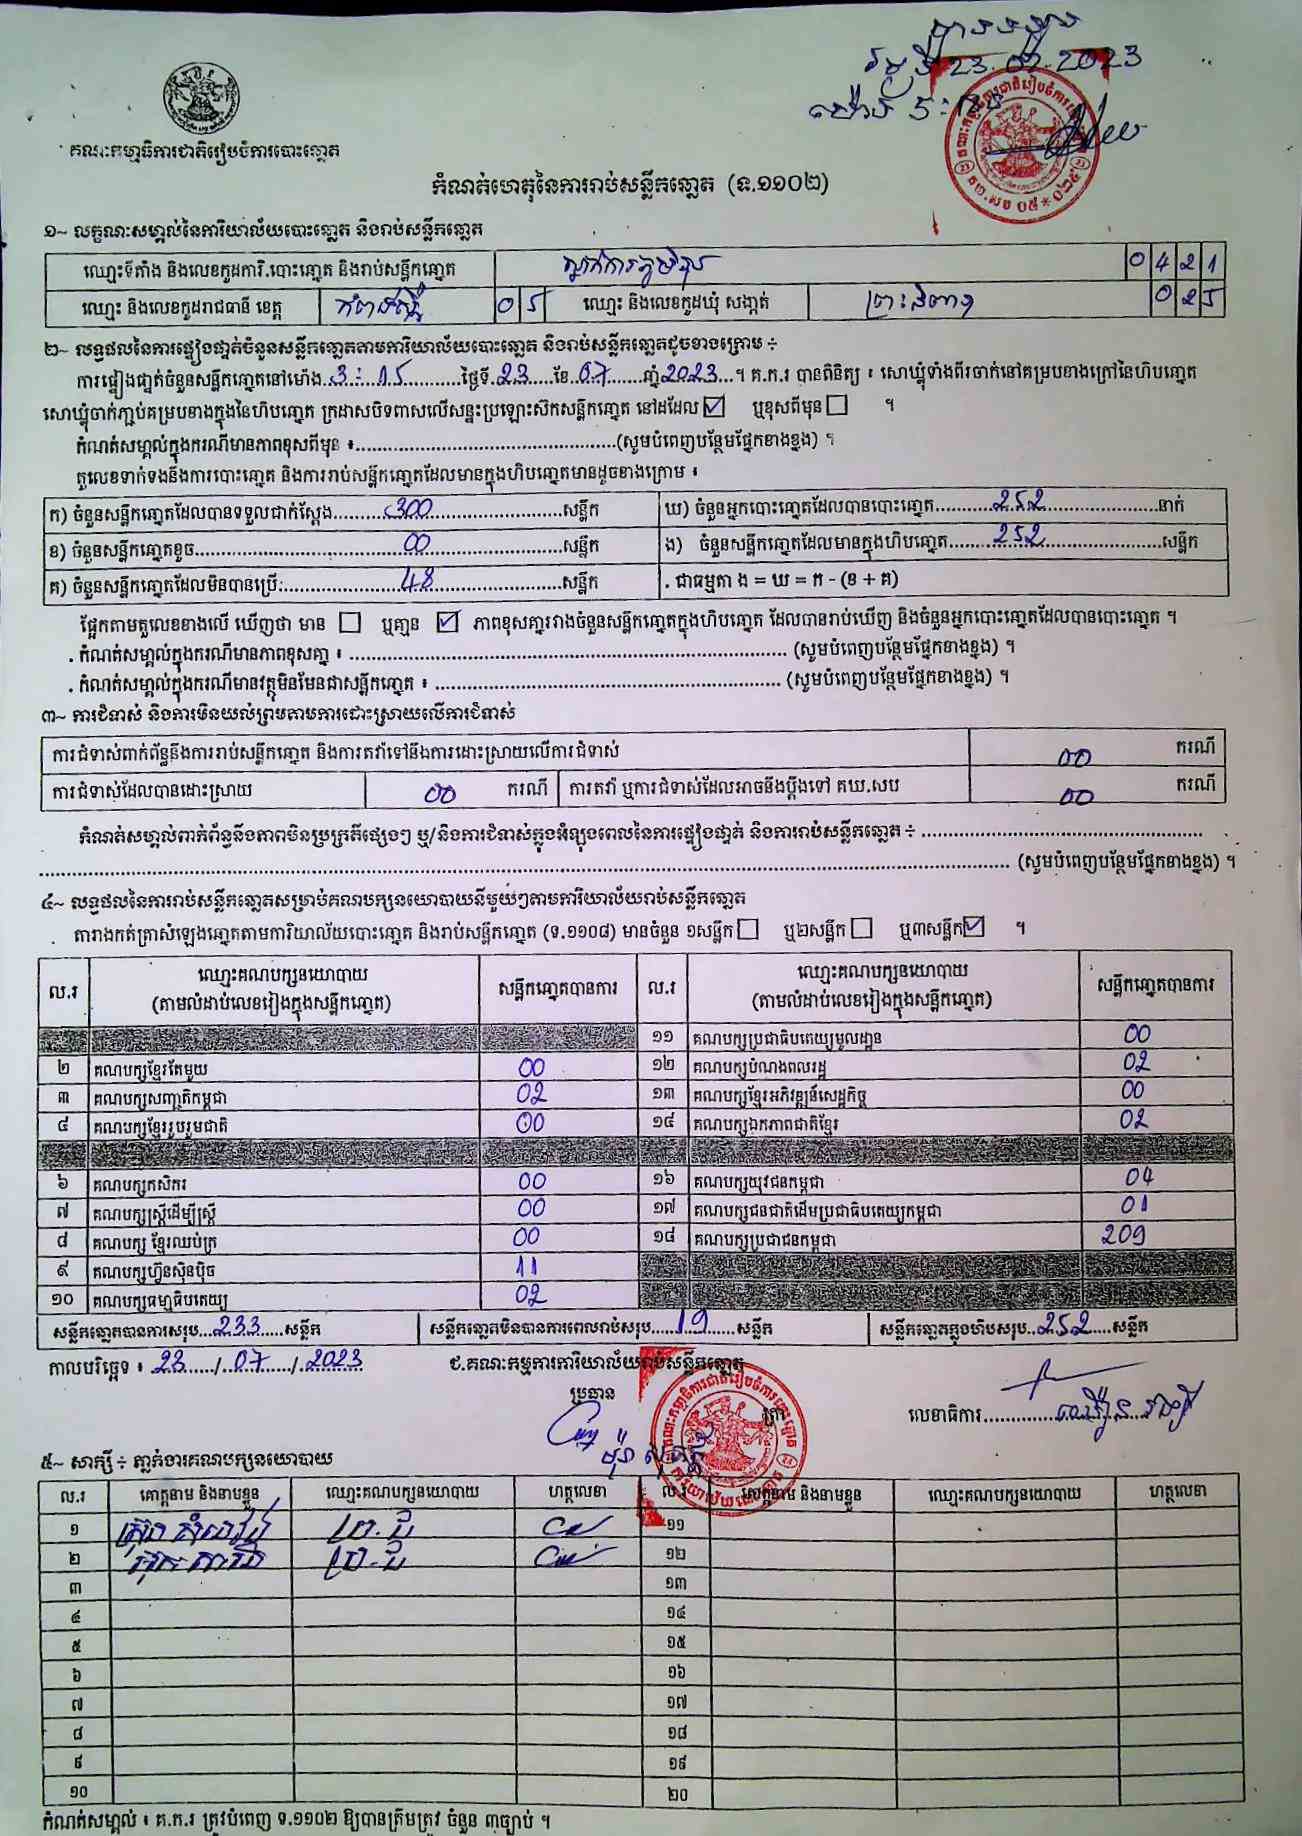 បានទទួល
ថ្ងៃទី 23.07.2023
ម៉ោង 5:
គណៈកម្មាធិការជាតិរៀបចំការបោះឆ្នោត
កំណត់ហេតុនៃការរាប់សន្លឹកឆ្នោត (ទ.១១០២)
១~ លក្ខណៈសម្គាល់នៃការិយាល័យបោះឆ្នោត និងរាប់សន្លឹកឆ្នោត
ឈ្មោះទីតាំង និងលេខកូដការិ.បោះឆ្នោត និងរាប់សន្លឹកឆ្នោត 0421
ឈ្មោះ និងលេខកូដរាជធានី ខេត្ត កំពង់ស្ពឺ 05 ឈ្មោះ និងលេខកូដឃុំ សង្កាត់ ព្រះនិពាន្វ 025
២~ លទ្ធផលនៃការផ្ទៀងផ្ទាត់ចំនួនសន្លឹកឆ្នោតតាមការិយាល័យបោះឆ្នោត និងរាប់សន្លឹកឆ្នោតដូចខាងក្រោម ÷
ការផ្ទៀងផ្ទាត់ចំនួនសន្លឹកឆ្នោតនៅម៉ោង 3:15 ថ្ងៃទី 23 ខែ 07 ឆ្នាំ 2023 ។ គ.ក.រ បានពិនិត្យ ៖ សោឃ្លុំទាំងពីរចាក់នៅគម្របខាងក្រៅនៃហិបឆ្នោត
សោឃ្លុំចាក់ភ្ជាប់គម្របខាងក្នុងនៃហិបឆ្នោត ក្រដាសបិទពាសលើសន្ទះប្រឡោះស៊កសន្លឹកឆ្នោត នៅដដែល ☑ ឬខុសពីមុន ☐ ។
កំណត់សម្គាល់ក្នុងករណីមានភាពខុសពីមុន ៖ (សូមបំពេញបន្ថែមផ្នែកខាងខ្នង) ។
តួលេខទាក់ទងនឹងការបោះឆ្នោត និងការរាប់សន្លឹកឆ្នោតដែលមានក្នុងហិបឆ្នោតមានដូចខាងក្រោម ៖
ក) ចំនួនសន្លឹកឆ្នោតដែលបានទទួលជាក់ស្តែង 300 សន្លឹក ឃ) ចំនួនអ្នកបោះឆ្នោតដែលបានបោះឆ្នោត 252 នាក់
ខ) ចំនួនសន្លឹកឆ្នោតខូច 00 សន្លឹក ង) ចំនួនសន្លឹកឆ្នោតដែលមានក្នុងហិបឆ្នោត 252 សន្លឹក
គ) ចំនួនសន្លឹកឆ្នោតដែលមិនបានប្រើ: 48 សន្លឹក . ជាធម្មតា ង = ឃ = ក - (ខ + គ)
ផ្អែកតាមតួលេខខាងលើ ឃើញថា មាន ☐ ឬគ្មាន ☑ ភាពខុសគ្នារវាងចំនួនសន្លឹកឆ្នោតក្នុងហិបឆ្នោត ដែលបានរាប់ឃើញ និងចំនួនអ្នកបោះឆ្នោតដែលបានបោះឆ្នោត ។
. កំណត់សម្គាល់ក្នុងករណីមានភាពខុសគ្នា ៖ (សូមបំពេញបន្ថែមផ្នែកខាងខ្នង) ។
. កំណត់សម្គាល់ក្នុងករណីមានវត្ថុមិនមែនជាសន្លឹកឆ្នោត ៖ (សូមបំពេញបន្ថែមផ្នែកខាងខ្នង) ។
៣~ ការជំទាស់ និងការមិនយល់ព្រមតាមការដោះស្រាយលើការជំទាស់
ការជំទាស់ពាក់ព័ន្ធនឹងការរាប់សន្លឹកឆ្នោត និងការតវ៉ាទៅនឹងការដោះស្រាយលើការជំទាស់ 00 ករណី
ការជំទាស់ដែលបានដោះស្រាយ 00 ករណី ការតវ៉ា ឬការជំទាស់ដែលអាចនឹងប្តឹងទៅ គឃ.សប 00 ករណី
កំណត់សម្គាល់ពាក់ព័ន្ធនឹងភាពមិនប្រក្រតីផ្សេងៗ ឬ/និងការជំទាស់ក្នុងអំឡុងពេលនៃការផ្ទៀងផ្ទាត់ និងការរាប់សន្លឹកឆ្នោត ÷
(សូមបំពេញបន្ថែមផ្នែកខាងខ្នង) ។
៤~ លទ្ធផលនៃការរាប់សន្លឹកឆ្នោតសម្រាប់គណបក្សនយោបាយនីមួយៗតាមការិយាល័យរាប់សន្លឹកឆ្នោត
តារាងកត់ត្រាសំឡេងឆ្នោតតាមការិយាល័យបោះឆ្នោត និងរាប់សន្លឹកឆ្នោត (ទ.១១០៨) មានចំនួន ១សន្លឹក ☐ ឬ២សន្លឹក ☐ ឬ៣សន្លឹក ☑ ។
ល.រ ឈ្មោះគណបក្សនយោបាយ (តាមលំដាប់លេខរៀងក្នុងសន្លឹកឆ្នោត) សន្លឹកឆ្នោតបានការ ល.រ ឈ្មោះគណបក្សនយោបាយ (តាមលំដាប់លេខរៀងក្នុងសន្លឹកឆ្នោត) សន្លឹកឆ្នោតបានការ
១១ គណបក្សប្រជាធិបតេយ្យមូលដ្ឋាន 00
២ គណបក្សខ្មែរតែមួយ 00 ១២ គណបក្សបំណងពលរដ្ឋ 02
៣ គណបក្សសញ្ជាតិកម្ពុជា 02 ១៣ គណបក្សខ្មែរអភិវឌ្ឍន៍សេដ្ឋកិច្ច 00
៤ គណបក្សខ្មែររួបរួមជាតិ 00 ១៤ គណបក្សឯកភាពជាតិខ្មែរ 02
៦ គណបក្សកសិករ 00 ១៦ គណបក្សយុវជនកម្ពុជា 04
៧ គណបក្សស្ត្រីដើម្បីស្ត្រី 00 ១៧ គណបក្សជនជាតិដើមប្រជាធិបតេយ្យកម្ពុជា 01
៨ គណបក្ស ខ្មែរឈប់ក្រ 00 ១៨ គណបក្សប្រជាជនកម្ពុជា 209
៩ គណបក្សហ៊្វុនស៊ិនប៉ិច 11
១០ គណបក្សធម្មាធិបតេយ្យ 02
សន្លឹកឆ្នោតបានការសរុប 233 សន្លឹក សន្លឹកឆ្នោតមិនបានការពេលរាប់សរុប 19 សន្លឹក សន្លឹកឆ្នោតក្នុងហិបសរុប 252 សន្លឹក
កាលបរិច្ឆេទ ៖ 23/07/2023 ជ.គណៈកម្មការការិយាល័យរាប់សន្លឹកឆ្នោត
ប្រធាន
លេខាធិការ
៥~ សាក្សី ÷ ភ្នាក់ងារគណបក្សនយោបាយ
ល.រ គោត្តនាម និងនាមខ្លួន ឈ្មោះគណបក្សនយោបាយ ហត្ថលេខា ល.រ គោត្តនាម និងនាមខ្លួន ឈ្មោះគណបក្សនយោបាយ ហត្ថលេខា
១ ១១
២ ១២
៣ ១៣
៤ ១៤
៥ ១៥
៦ ១៦
៧ ១៧
៨ ១៨
៩ ១៩
១០ ២០
កំណត់សម្គាល់ ៖ គ.ក.រ ត្រូវបំពេញ ទ.១១០២ ឱ្យបានត្រឹមត្រូវ ចំនួន ៣ច្បាប់ ។